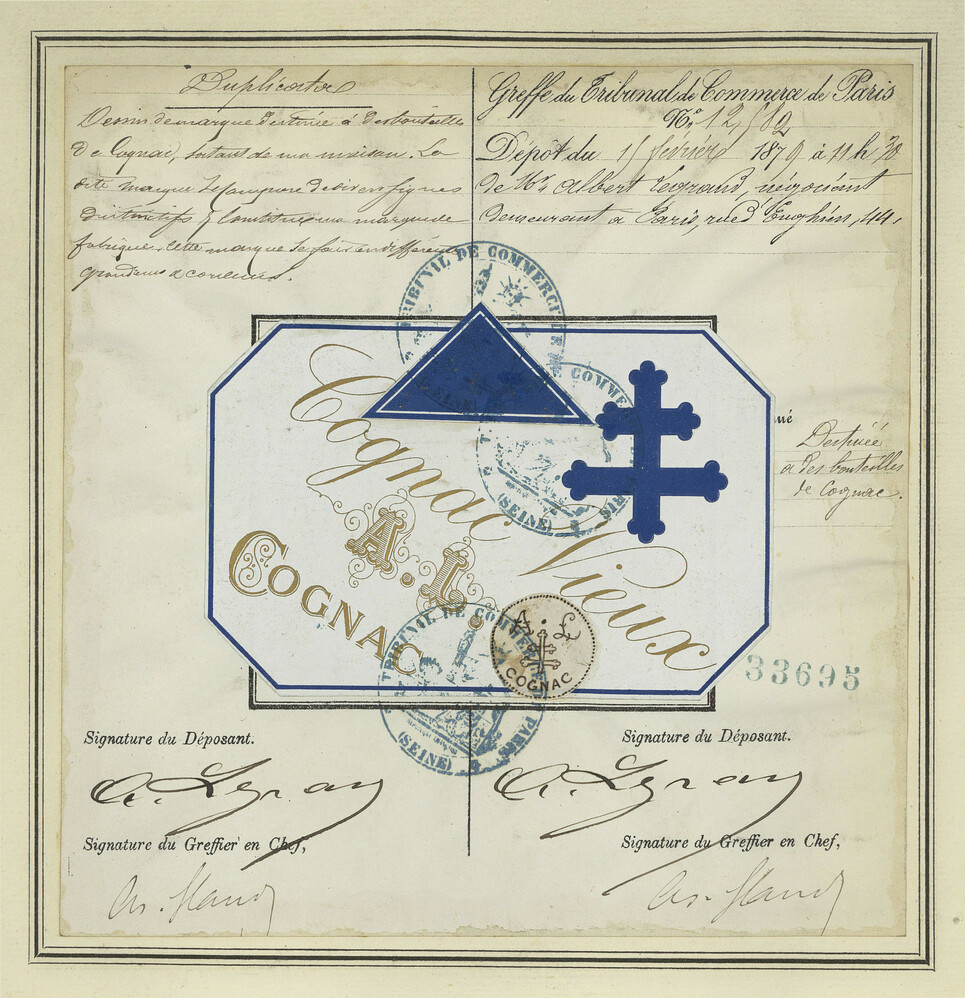 Duplicata
Dessin de marque destinée à des bouteilles
de Cognac, sortant de ma maison. La
dite marque se compose de divers signes
distinctifs & constitue ma marque de
fabrique. Cette marque se fait en différentes
grandeurs & couleurs.
Greffe du Tribunal de Commerce de Paris
No. 12
Dépôt du 15 février 1879 à 11 h 30
de Mr. Albert Legrand, négociant
demeurant à Paris, rue d'Enghien, 44.
TRIBUNAL DE COMMERCE DE
COMME
PARIS
(SEINE)
Cognac Vieux
A. L.
COGNAC
A. L.
COGNAC
né
Destinée
à des bouteilles
de Cognac.
TRIBUNAL DE COMMERCE DE PARIS
(SEINE)
33695
Signature du Déposant.
Signature du Déposant.
Signature du Greffier en Chef,
Signature du Greffier en Chef,